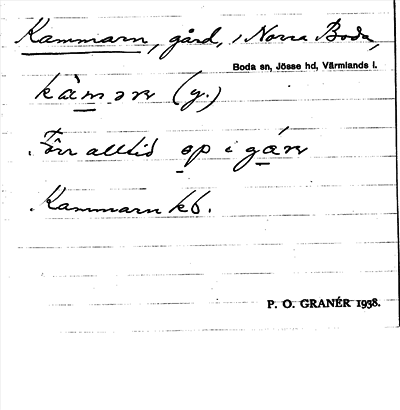 Kammarn, gård, i Norra Boda,
Boda sn, Jösse hd, Värmlands l.
kàmər (y.)
Förr alltid op i gárn
Kammarn kb.
P. O. GRANÉR 1938.